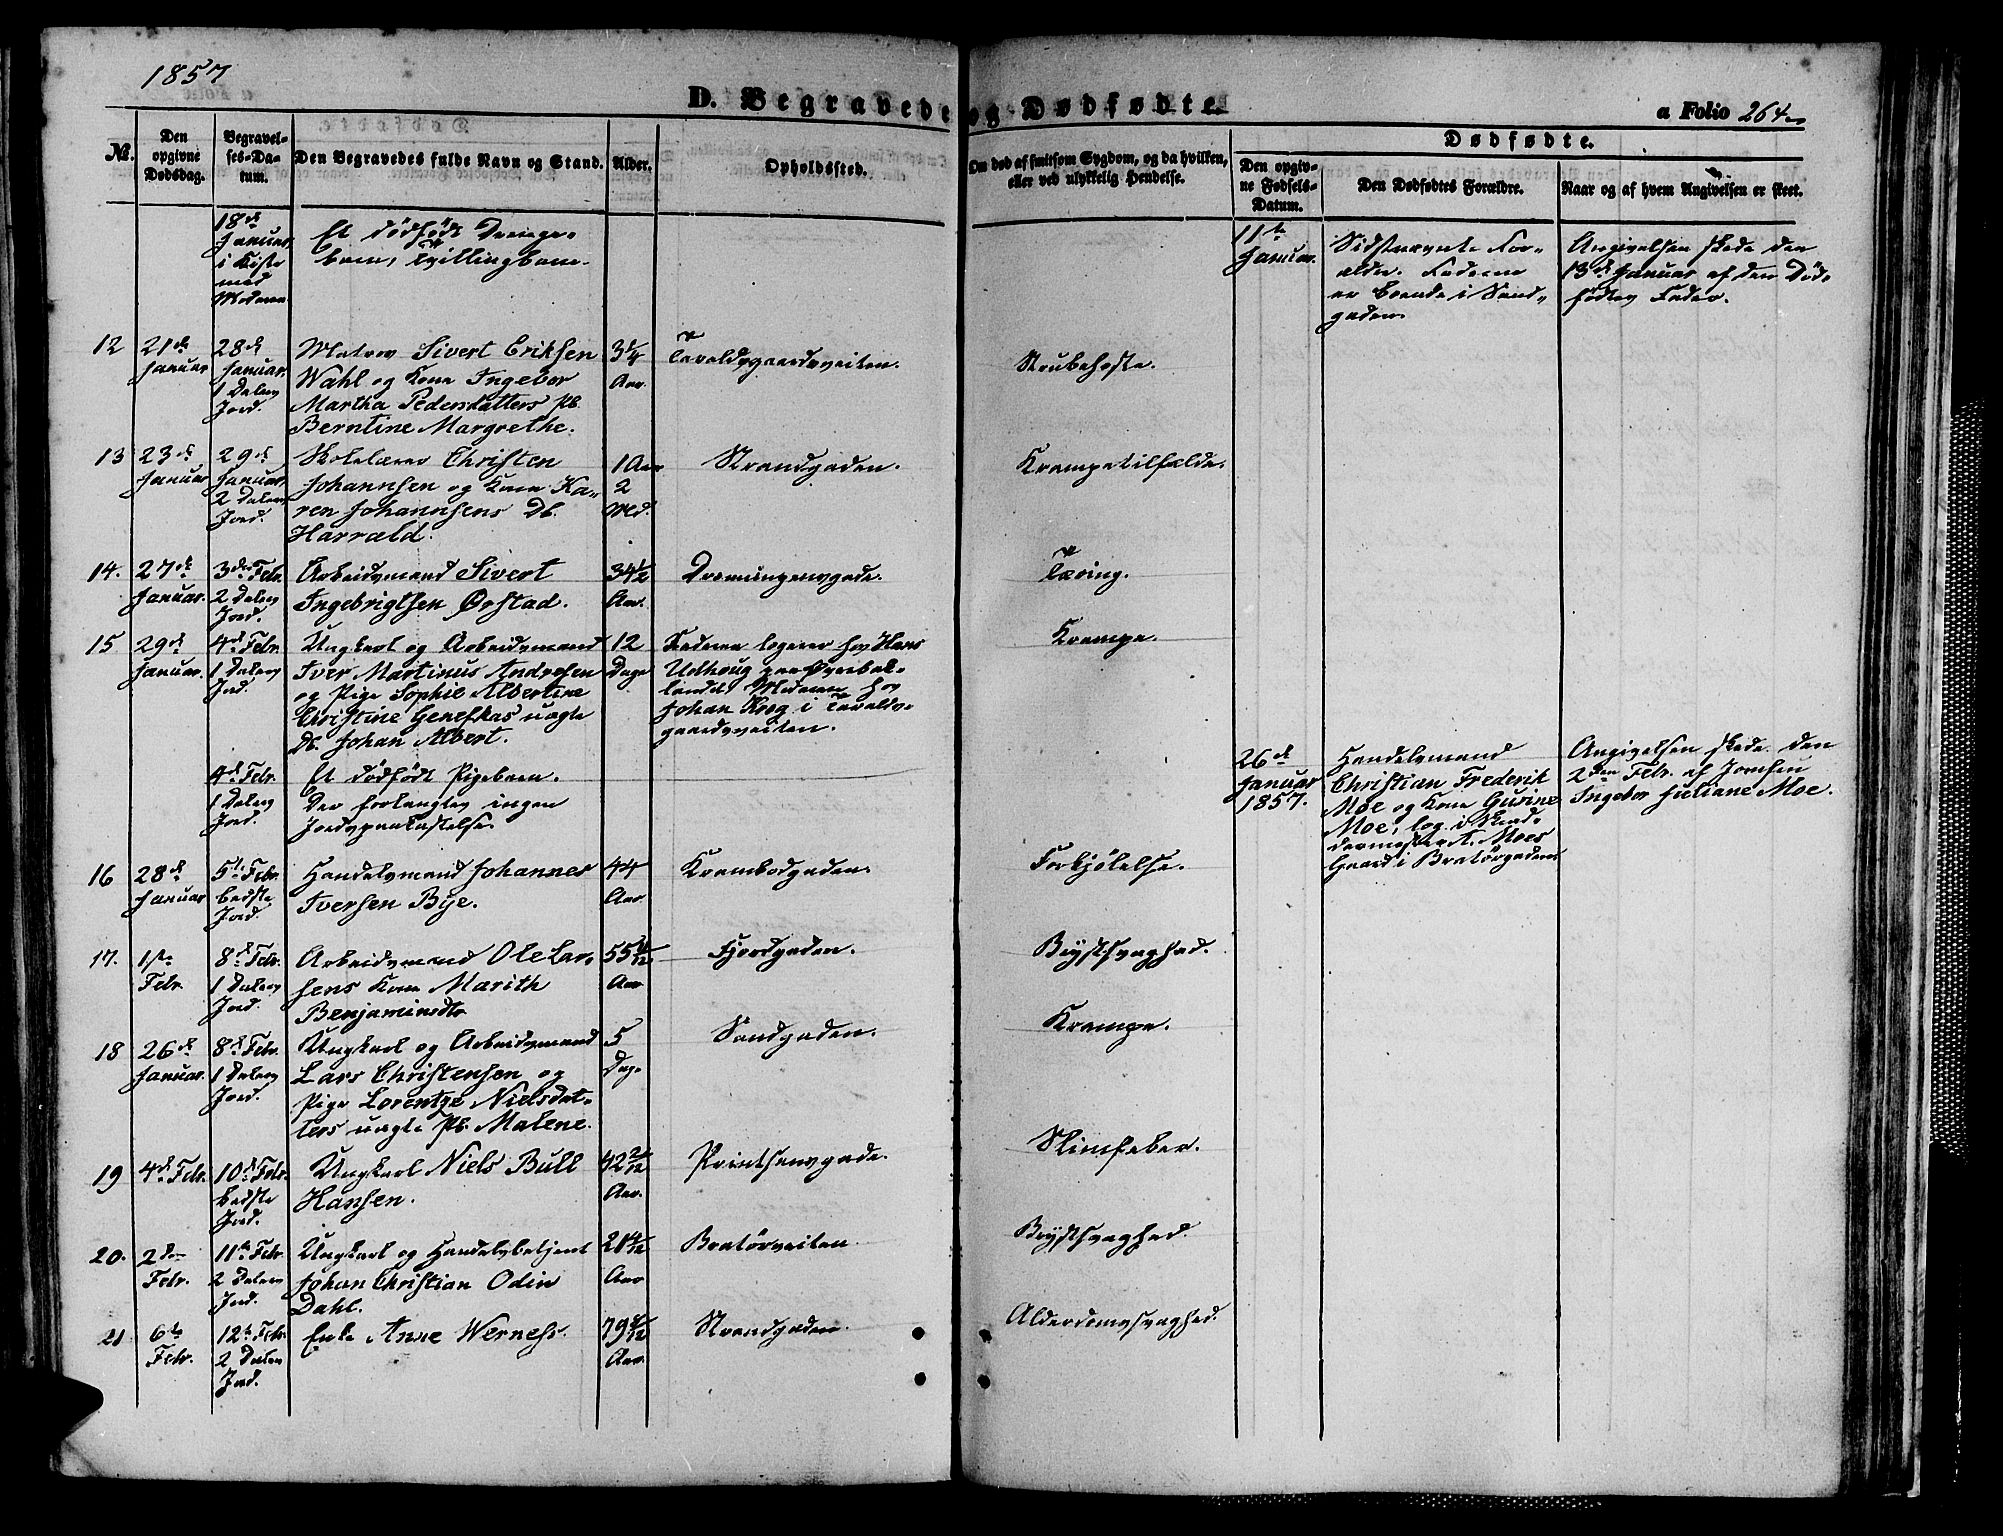 1857
D. Begravede og Dødfødte.
a Folio 264
No.
Den opgivne Dødsdag.
Begravelses-Datum.
Den Begravedes fulde Navn og Stand.
Alder.
Opholdssted.
Om død af smitsom Sygdom, og da hvilken,
eller ved ulykkelig Hendelse.
Dødfødte.
Den opgivne Fødsels-Datum.
Den Dødfødtes Forældre.
Naar og af hvem Angivelsen er skeet.
18de Januar i Kiste med Moderen
Et dødfødt Drenge-
barn, Tvillingbarn.
11te Januar.
Sidstnævnte For-
ældre. Faderen
er boende i Sand-
gaden.
Angivelsen skede den
13de Januar af den Død-
fødtes Fader.
12
21de Januar
28de Januar. 1 Dalers Jord.
Matros Sivert Eriksen
Wahl og Kone Ingebor
Martha Pedersdatters Pb.
Berntine Margrethe.
Aar
Taraldsgaardsveiten.
Strubehoste.
13
23de Januar
29de Januar, 2 Dalers Jord.
Skolelærer Christen
Johannsen og Kone Ka-
ren Johannsens Db.
Harrald.
1 Aar
2
Md.
Strandgaden.
Krampetilfælde.
14.
27de Januar.
3die Febr. 2 Dalers Jord.
Arbeidsmand Sivert
Ingebrigtsen Ørstad.
34 1/2
Aar.
Dronningensgade.
Tæring.
15
29de Januar.
4de Febr. 1 Dalers Jord.
Ungkarl og Arbeidsmand
Iver Martinus Andresen
og Pige Sophie Albertine
Christine Genefkas uægte
Db. Johan Albert.
12
Dage
Faderen logerer hos Hans
Udhoug paa Øvrebak-
landet, Moderen hos
Johan Krog i Taralds-
gaardsveiten.
Krampe.
4de Febr. 1 Dalers Jord.
Et dødfødt Pigebarn.
Der forlangtes ingen
Jordspaakastelse.
26de Januar 1857.
Handelsmand
Christian Frederik
Moe og Kone Gurine
Moe, log. i
A. Moes
Gaard i Bratørgaden
Angivelsen skede den
2den Febr. af Jomfru
Ingebor Juliane Moe.
16
28de Januar
5te Febr. bedste Jord.
Handelsmand Johannes
Iversen Bye.
44
Aar
Krambodgaden.
Forkjølelse.
17.
1ste Febr.
8de Febr. 1 Dalers Jord.
Arbeidsmand Ole Lar-
sens Kone Marith
Benjaminsdtr
Aar.
Fjordgaden.
Brystsvaghed.
18
26de Januar.
8de Febr. 1 Dalers Jord.
Ungkarl og Arbeidsmand
Lars Christensen og
Pige Lorentze Nielsdat-
ters uægte Pb. Malene.
5
Dage
Sandgaden.
Krampe.
19
4de Febr.
10de Febr. bedste Jord.
Ungkarl Niels Bull
Hansen.
42 2/12
Aar.
Printsensgade.
Slimfeber.
20.
2den Febr.
11te Febr. 2 Dalers Jord.
Ungkarl og Handelsbetjent
Johan Christian Odin
Dahl.
21 4/12
Aar
Bratørveiten
Brystsvaghed.
21
6te Febr.
12te Febr. 2 Dalers Jord.
Enke Anne Werness.
Aar
Strandgaden.
Alderdomssvaghed.